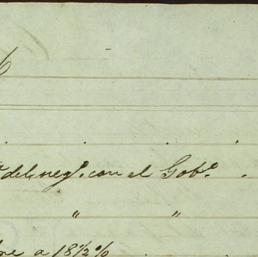 del neg.º con el Gob.º
" "
a 18½%